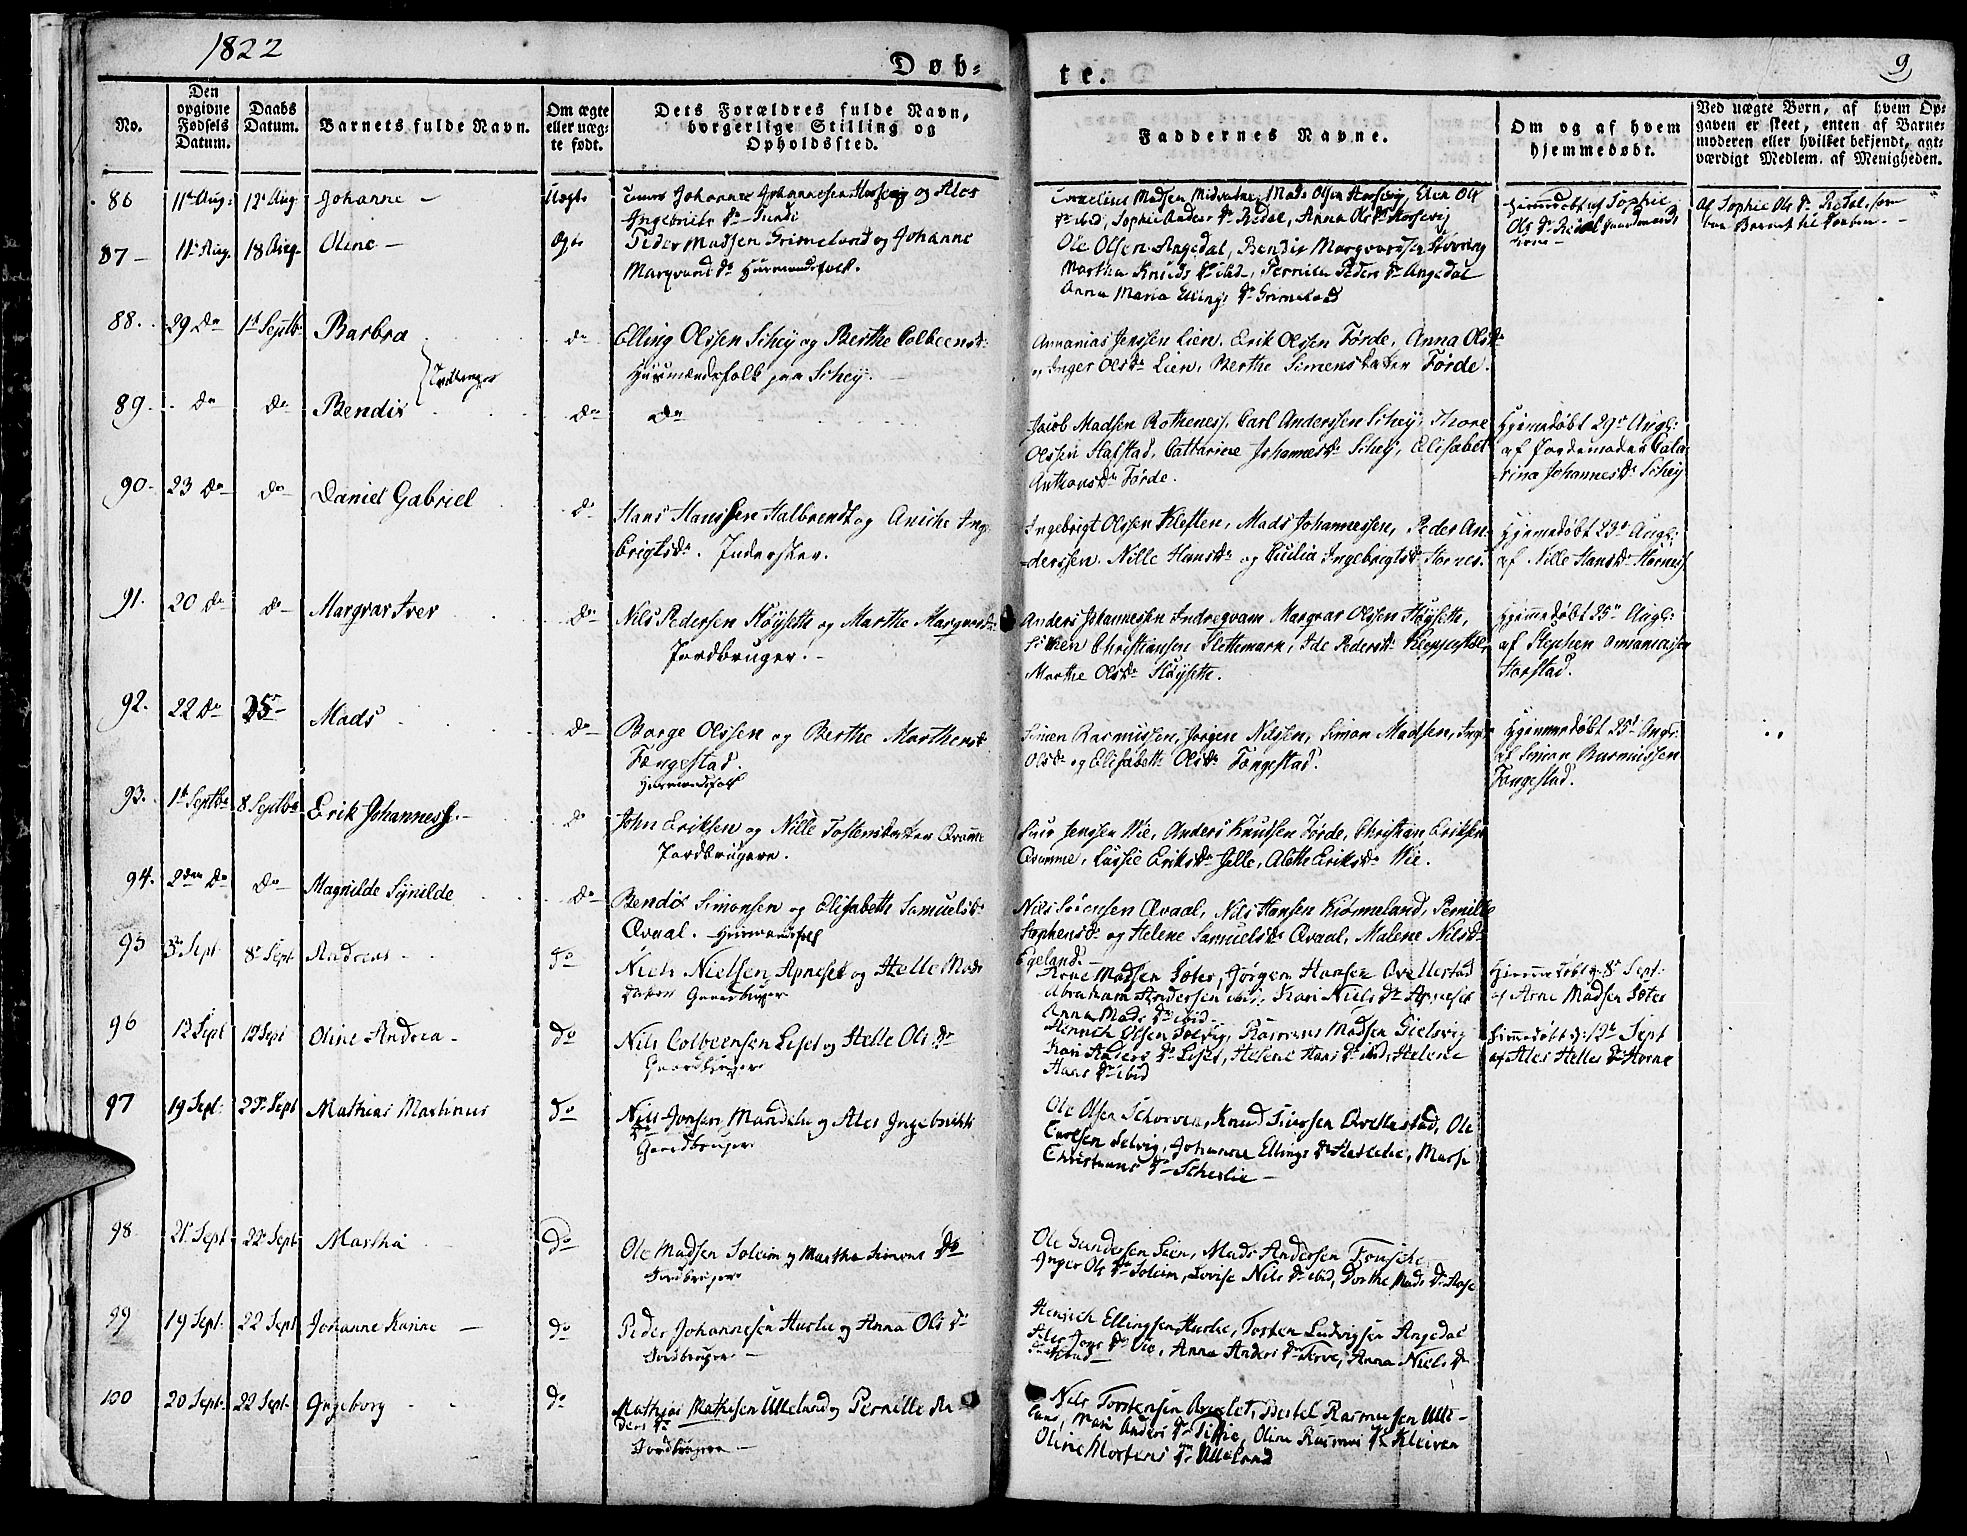 1822
Døb-
te.
9
No.
Den opgivne Fødsels Datum.
Daabs Datum.
Barnets fulde Navn.
Om ægte eller uæg-te født.
Dets Forældres fulde Navn, borgerlige Stilling og Opholdssted.
Faddernes Navne.
Om og af hvem hjemmedøbt.
Ved uægte Børn, af hvem Op-gaven er skeet, enten af Barne-moderen eller hvilket bekjendt, agt-værdigt Medlem. af Menigheden.
86 11te Aug: 12te Aug Johanne – Uægte Johannes Johannesen Horsevig og Ales
Ingebrits Dr Sunde
Cornelius Madsen Midvatne, Mads Olsen Horsevig, Elen Ols
Dr ibid, Sophie Anders Dr Redal, Anna Ols Dr Horsevig
af Sophie
Ols Dr Redal
Af Sophie Ols Dr Redal, som
bar Barnet til Daaben –
87 – 11te Aug. 18 Aug. Oline – Ægte Peder Madsen Grimelund og Johanne
Marqvards Dr Huusmandsfolk.
Ole Olsen Angedal, Bendix Marqvardsen
Martha Knuds Dr ibid, Pernille Peders Dr Angedal
Anna Maria Ellings Dr Grimelund
88. 29 Do 1te Septb. Barbra Do Elling Olssen Schey og Berthe Colbeensd:
Huusmændsfolk paa Schey.
Annanias Jenssen Lien, Erik Olssen Førde, Anna Olsdr
Inger Olsdr Lien, Berthe Simensdatter Førde.
Tvillinger
89. Do Do Bendix Do Do
Jacob Madsen Rothenes, Carl Anderssen Schey, Thore
Olssen Halstad, Cattarine Johannesdr Schey, Elisabet
Anthonsdr Førde.
Hjemmedøbt 29de Augs:
af Jordemoder Cata-
rina Johannesdr Schey
90. 23 Do Do Daniel Gabriel Do Hans Hanssen Halbrendt og Aniche Inge
brigtsdr. Inderster.
Ingebrigt Olssen Kleften, Mads Johannessen, Peder An-
derssen. Nille Hansdr og Cicilia Ingebrigtsdr Hornes.
Hjemmedøbt 23de Augs:
af Nille Hansdr Hornes
91. 20 Do Do Margvar Iver Do Nils Pedersen Høysette og Marthe Margvarsdr
Jordbruger. –
Anders Johannessen Indreqvam Margvar Olssen Høysette,
Christiansen Slettemark, Ide Pedersdr Kleppestøl
Marthe Olsdr Høysette.
Hjemmedøbt 25de Augs:
af Stephen Annaniassen
Harstad.
92. 22 Do 25 – Mads Do Børge Olssen og Berthe Marthensdr
Fængestad.
Huusmandsfolk
Simen Rasmussen, Jørgen Nilssen, Simon Madssen, Inge
Olsdr og Elisabeth Olsdr Fængestad.
Hjemmedøbt 25de Augs:
af Simon Rasmussen
Fængestad.
93. 1te Septbr 8 Septbr Erik Johannes. – Do John Eriksen og Nille Tostensdatter Qvamme
Jordbrugere.
Siur Jenssen Vie, Anders Knudsen Førde, Christian Eriksen
Qvamme, Lussie Eriksdr Jelle, Alethe Eriksdr Vie.
94. 2den Do Do Magnilde Synilde Do Bendix Simonsen og Elisabeth Samuelsdr
Qvaal. Huusmandsfolk
Nils Sørensen Qvaal, Nils Hansen Kiønneland, Pernille
Stephensdr og Helene Samuelsdr Qvaal, Malene Nilsdr
Egeland. –
95 3de Sept 8de Sept Andreas – Do Niels Nielsen Apneset og Helle Mads
Datter Gaardbruger
Arne Madsen Soter, Jørgen Hansen Qvellestad
Abraham Andersen ibid, Kari Niels Dr Apneset
Anna Mads Dr ibid –
Hjemmedøbt 8de Sept:
af Arne Madsen Soter
96 12 Sept 12 Sept Oline Andrea – Do Nils Colbeensen Leset og Helle Ols Dr
Gaardbruger
Henrich Olssen Solvig, Rasmus Madsen Gielsvig
Kari Anders Dr Leset, Helene Hans Dr ibid, Helene
Hans Dr ibid
Hjemmedøbt d: 12te Sept
af Ales Helles Dr Horne
97 19 Sept. 22de Sept Mathias Martinus Do Nils Jonsen Mundal og Ales Ingebrikts
Dr
Gaardbruger
Ole Olsen Schorven, Knud Siursen Qvellestad, Ole
Carlsen Selvig, Johanne Ellings Dr Hatlelie, Marse
Christians Dr Scherlie –
98 21 Sept 22de Sept Martha Do Ole Madsen Soleim og Martha Simons Dr
Jordbruger
Ole Gundersen Lien, Mads Andersen
Inger Ols Dr Soleim, Lovise Nils Dr ibid, Dorthe Mads Dr
99 19 Sept. 22 Sept Johanne Karine – Do Peder Johannesen Hurlee og Anna Ols Dr
Jordbruger –
Henrich Ellingsen Hurlee, Tosten Ludvigsen Angedal
Dr Vie, Anna Anders Dr, Anna Niels Dr
ibid
100 20 Sept. 22 Sept. Ingeborg Do Mathias Mathisen Ulleland og Pernille An
ders Dr
Jordbruger –
Nils Torstensen, Bertel Rasmussen Ulle-
land, Mari Anders Dr, Oline Rasmus Dr Kleiven
Oline Mortens Dr Ulleland